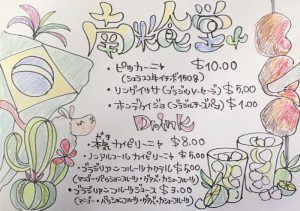 南米食堂
・ピッカーニャ $10.00
(シュラスコ用イチボ 150g)
・リングイッサ (ブラジルソーセージ) $5.00
・ポンデケイジョ (ブラジルチーズパン) $1.00
Drink
・本気カイピリーニャ $8.00
・ノンアルコールカイピリーニャ $5.00
・ブラジリアンフルーツカクテル $5.00
(マンゴー・パッションフルーツ・グァバ・カシューフルーツ)
・ブラジリアンフルーツジュース $3.00
(マンゴー・パッションフルーツ・グァバ・カシューフルーツ)